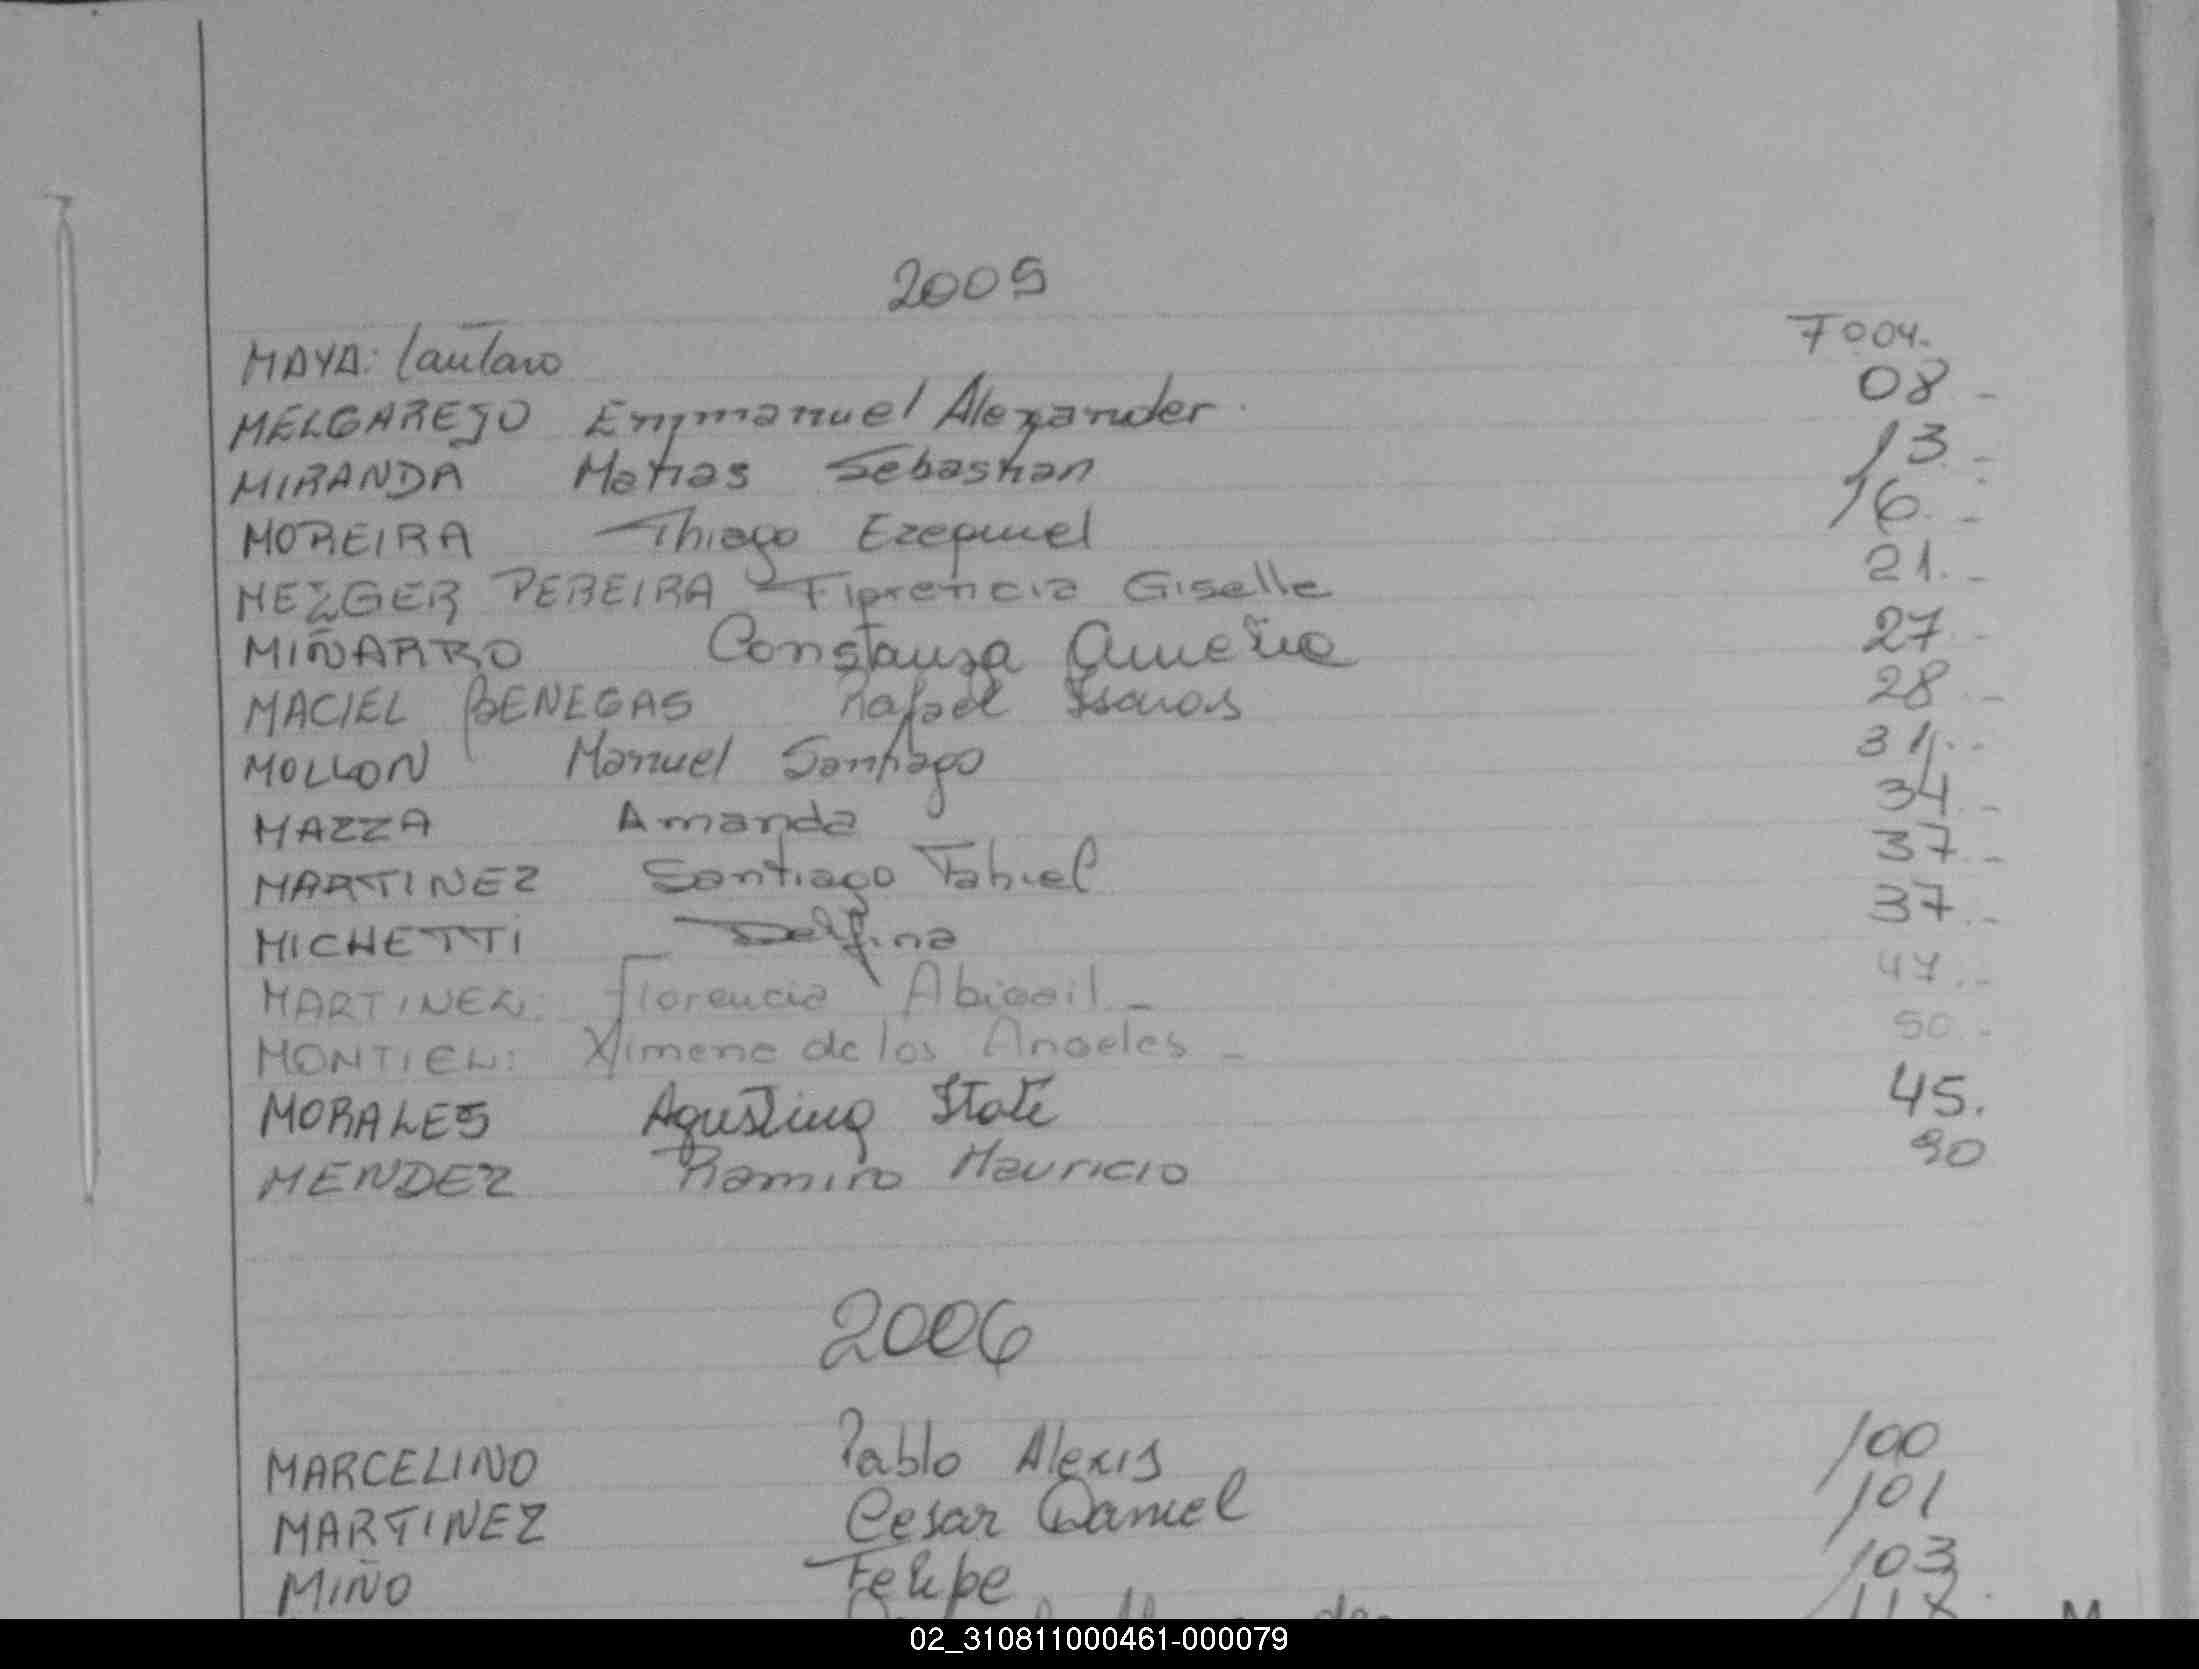 2005
MAYA: Lautaro Fº 04.-
MELGAREJO Emmanuel Alexander. 08.-
MIRANDA Matias Sebastian 13.-
MOREIRA Thiago Ezequiel 16.-
MEZGER PEREIRA Florencia Giselle 21.-
MIÑARRO Constanza 27.-
MACIEL BENEGAS Rafael 28.-
MOLLON Manuel Santiago 31.-
MAZZA Amanda 34.-
MARTINEZ Santiago Tahiel 37.-
MICHETTI Delfina 37.-
MARTINEZ: Florencia Abigail - 47.-
MONTIEL: Ximena de los Angeles - 50.-
MORALES Agustina Itati 45.
MENDEZ Ramiro Mauricio 90
2006
MARCELINO Pablo Alexis 100
MARTINEZ Cesar Daniel 101
MIÑO Felipe 103
M
02_310811000461-000079